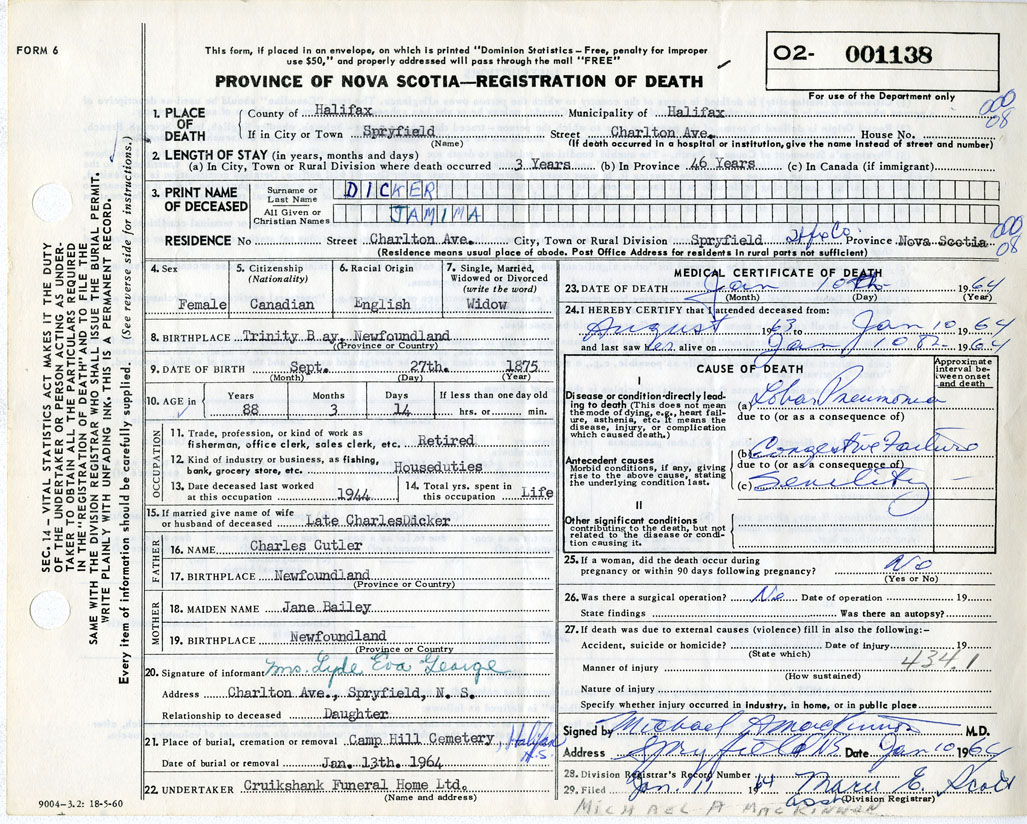 FORM 6
This form, if placed in an envelope, on which is printed "Dominion Statistics – Free, penalty for improper
use $50," and properly addressed will pass through the mail "FREE"
PROVINCE OF NOVA SCOTIA—REGISTRATION OF DEATH
O2- 001138
For use of the Department only
000
08
SEC. 14 – VITAL STATISTICS ACT MAKES IT THE DUTY
OF THE UNDERTAKER OR PERSON ACTING AS UNDER-
TAKER TO OBTAIN ALL THE PARTICULARS REQUIRED
IN THE "REGISTRATION OF DEATH" AND TO FILE THE
SAME WITH THE DIVISION REGISTRAR WHO SHALL ISSUE THE BURIAL PERMIT.
WRITE PLAINLY WITH UNFADING INK. THIS IS A PERMANENT RECORD.
Every item of information should be carefully supplied. (See reverse side for instructions.)
1. PLACE OF DEATH County of Halifax Municipality of Halifax
If in City or Town Spryfield Street Charlton Ave. House No.
(Name) (If death occurred in a hospital or institution, give the name instead of street and number)
2. LENGTH OF STAY (in years, months and days)
(a) In City, Town or Rural Division where death occurred 3 Years (b) In Province 46 Years (c) In Canada (if immigrant)
3. PRINT NAME OF DECEASED Surname or Last Name DICKER
All Given or Christian Names JAMIMA
RESIDENCE No Street Charlton Ave. City, Town or Rural Division Spryfield Hfx Co. Province Nova Scotia
000
08
(Residence means usual place of abode. Post Office Address for residents in rural parts not sufficient)
4. Sex Female
5. Citizenship (Nationality) Canadian
6. Racial Origin English
7. Single, Married, Widowed or Divorced (write the word) Widow
8. BIRTHPLACE Trinity Bay, Newfoundland
(Province or Country)
9. DATE OF BIRTH Sept. 27th. 1875
(Month) (Day) (Year)
10. AGE in Years 88 Months 3 Days 14 If less than one day old
hrs. or min.
OCCUPATION
11. Trade, profession, or kind of work as
fisherman, office clerk, sales clerk, etc. Retired
12. Kind of industry or business, as fishing,
bank, grocery store, etc. Houseduties
13. Date deceased last worked
at this occupation 1944
14. Total yrs. spent in
this occupation Life
15. If married give name of wife
or husband of deceased Late CharlesDicker
FATHER
16. NAME Charles Cutler
17. BIRTHPLACE Newfoundland
(Province or Country)
MOTHER
18. MAIDEN NAME Jane Bailey
19. BIRTHPLACE Newfoundland
(Province or Country)
20. Signature of informant Mrs. Lyde Eva George
Address Charlton Ave., Spryfield, N. S.
Relationship to deceased Daughter
21. Place of burial, cremation or removal Camp Hill Cemetery, Halifax N.S.
Date of burial or removal Jan. 13th. 1964
22. UNDERTAKER Cruikshank Funeral Home Ltd.
(Name and address)
9004–3.2: 18-5-60
MEDICAL CERTIFICATE OF DEATH
23. DATE OF DEATH Jan 10th 1964
(Month) (Day) (Year)
24. I HEREBY CERTIFY that I attended deceased from:
August 1963 to Jan 10 1964
and last saw her alive on Jan 10th 1964
CAUSE OF DEATH
Approximate
interval be-
tween onset
and death
I
Disease or condition directly lead-
ing to death (This does not mean
the mode of dying, e.g., heart fail-
ure, asthenia, etc. It means the
disease, injury, or complication
which caused death.)
(a) Lobar Pneumonia
due to (or as a consequence of)
Antecedent causes
Morbid conditions, if any, giving
rise to the above cause, stating
the underlying condition last.
(b) Congestive Failure
due to (or as a consequence of)
(c) Senility –
II
Other significant conditions
contributing to the death, but not
related to the disease or condi-
tion causing it.
25. If a woman, did the death occur during
pregnancy or within 90 days following pregnancy? No
(Yes or No)
26. Was there a surgical operation? No Date of operation 19
State findings Was there an autopsy?
27. If death was due to external causes (violence) fill in also the following:–
Accident, suicide or homicide? Date of injury 19
(State which)
434.1
Manner of injury
(How sustained)
Nature of injury
Specify whether injury occurred in industry, in home, or in public place
Signed by Michael A Mackinnon M.D.
Address Spryfield NS Date Jan 10 1964
28. Division Registrar's Record Number
29. Filed Jan. 11 1964 Marie E. Scott
asst (Division Registrar)
MICHAEL A MACKINNON